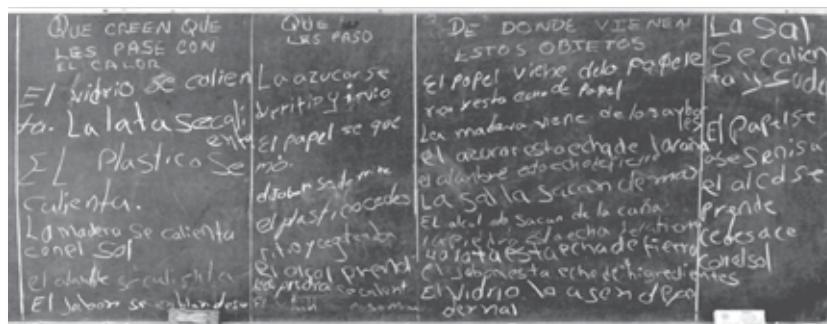 QUE CREEN QUE
LES PASE CON
EL CALOR
El vidrio se calien
ta. La lata se cali
enta
EL Plastico se
calienta.
La madera se calienta
con el sol
el
El Jabon se
QUE
LES PASO
La azucar se
y
El papel se que
mo.
el plastico
y
el alcol prend
El
DE DONDE VIENEN
ESTOS OBJETOS
El Papel viene dela papele
ra esta echo de Papel
La madera viene de los arbo
les
el azucar esta echa de la caña
el alambre esta echo de fierro
La sal la sacan del mar
EL alcol lo sacan de la caña
la piedra esta echa de tierra
la lata esta echa de fierro
el Jabon esta echo de higredientes
El Vidrio lo asen de pe
dernal
La Sal
Se calien
ta y Suda
El Papel se
ase Senisa
el alcol se
Prende
con el sol